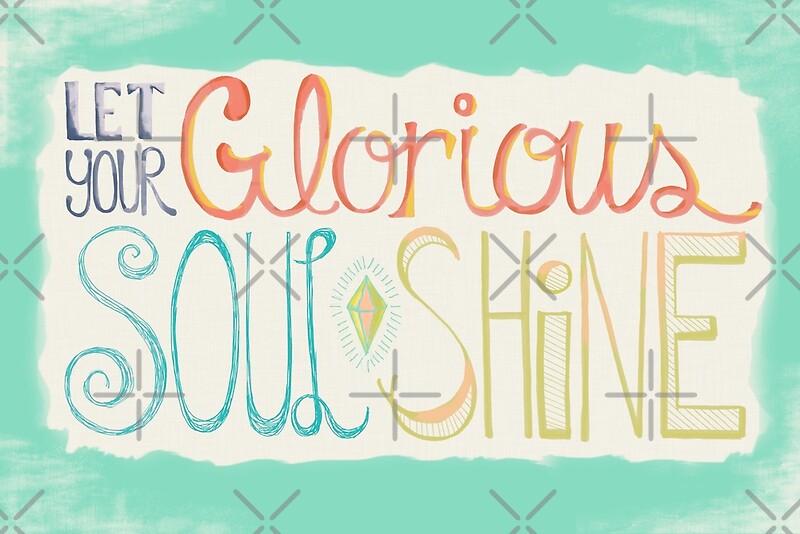 LET
YOUR Glorious
SOUL SHiNE